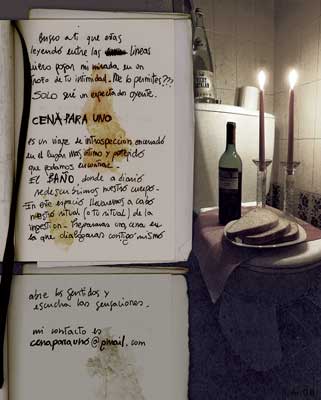 Busco a ti que estás
leyendo entre las líneas
quiero posar mi mirada en un
trozo de tu intimidad. Me lo permites???
SOLO seré un espectador oyente.
CENA PARA UNO
es un viaje de introspección encerrado
en el lugar más íntimo y protegido
que podamos encontrar.
EL BAÑO, donde a diario
redescubrimos nuestro cuerpo.
En este espacio llevaremos a cabo
nuestro ritual (o tu ritual) de la
ingestión. Prepararás una cena en
la que dialogarás contigo mismo
abre los sentidos y
escucha las sensaciones.
mi contacto es
cenaparauno@gmail.com